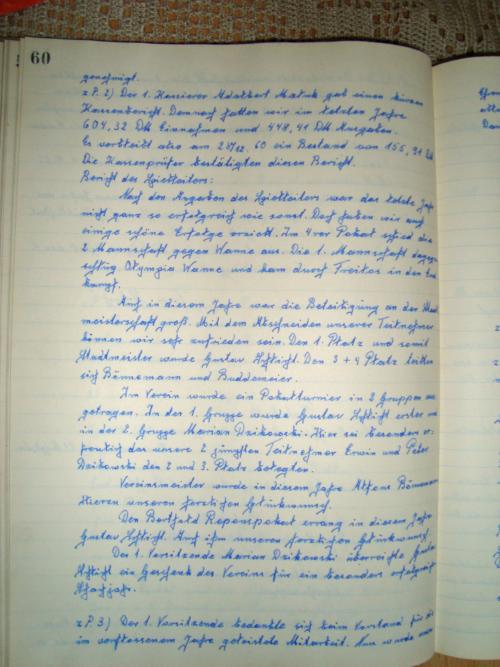 60
genehmigt.
z P. 2) Der 1. Kassierer Adalbert gab einen kurzen
Kassenbericht. Demnach hatten wir im letzten Jahre
604,32 DM Einnahmen und 448,41 DM Ausgaben.
Es verbleibt also am 60 ein Bestand von 155,91 DM
Die Kassenprüfer bestätigten diesen Bericht.
Bericht des Spielleiters:
Nach den Angaben des Spielleiters war das letzte Jahr
nicht ganz so erfolgreich wie sonst. Doch haben wir auch
einige schöne Erfolge erzielt. Im 4rer Pokal schied die
2 Mannschaft gegen Wanne aus. Die 1. Mannschaft dagegen
schlug Olympia Wanne und kam durch Freilos in den
kampf.
Auch in diesem Jahre war die Beteiligung an der Stadt
meisterschaft groß. Mit dem Abschneiden unserer Teilnehmer
können wir sehr zufrieden sein. Den 1. Platz und somit
Stadtmeister wurde Gustav Schlicht. Den 3 + 4 Platz teilten
sich Bönnemann und Buddemeier.
Im Verein wurde ein Pokalturnier in 2 Gruppen aus
getragen. In der 1. Gruppe wurde Gustav Schlicht erster und
in der 2. Gruppe Marian Dzikowski. Hier sei besonders er-
freulich das unsere 2 jüngsten Teilnehmer Erwin und Peter
Dzikowski den 2 und 3. Platz belegten.
Vereinsmeister wurde in diesem Jahre Alfons
Hierzu unseren herzlichen Glückwunsch.
Den Berthold Repenspokal errang in diesem Jahre
Gustav Schlicht. Auch ihm unseren herzlichen Glückwunsch.
Der 1. Vorsitzende Marian Dzikowski überreichte Gustav
Schlicht ein Geschenk des Vereins für ein besonders erfolgreiches
Schachjahr.
z P. 3) Der 1. Vorsitzende bedankte sich beim Vorstand für die
im verflossenem Jahre geleistete Mitarbeit. Nun wurde